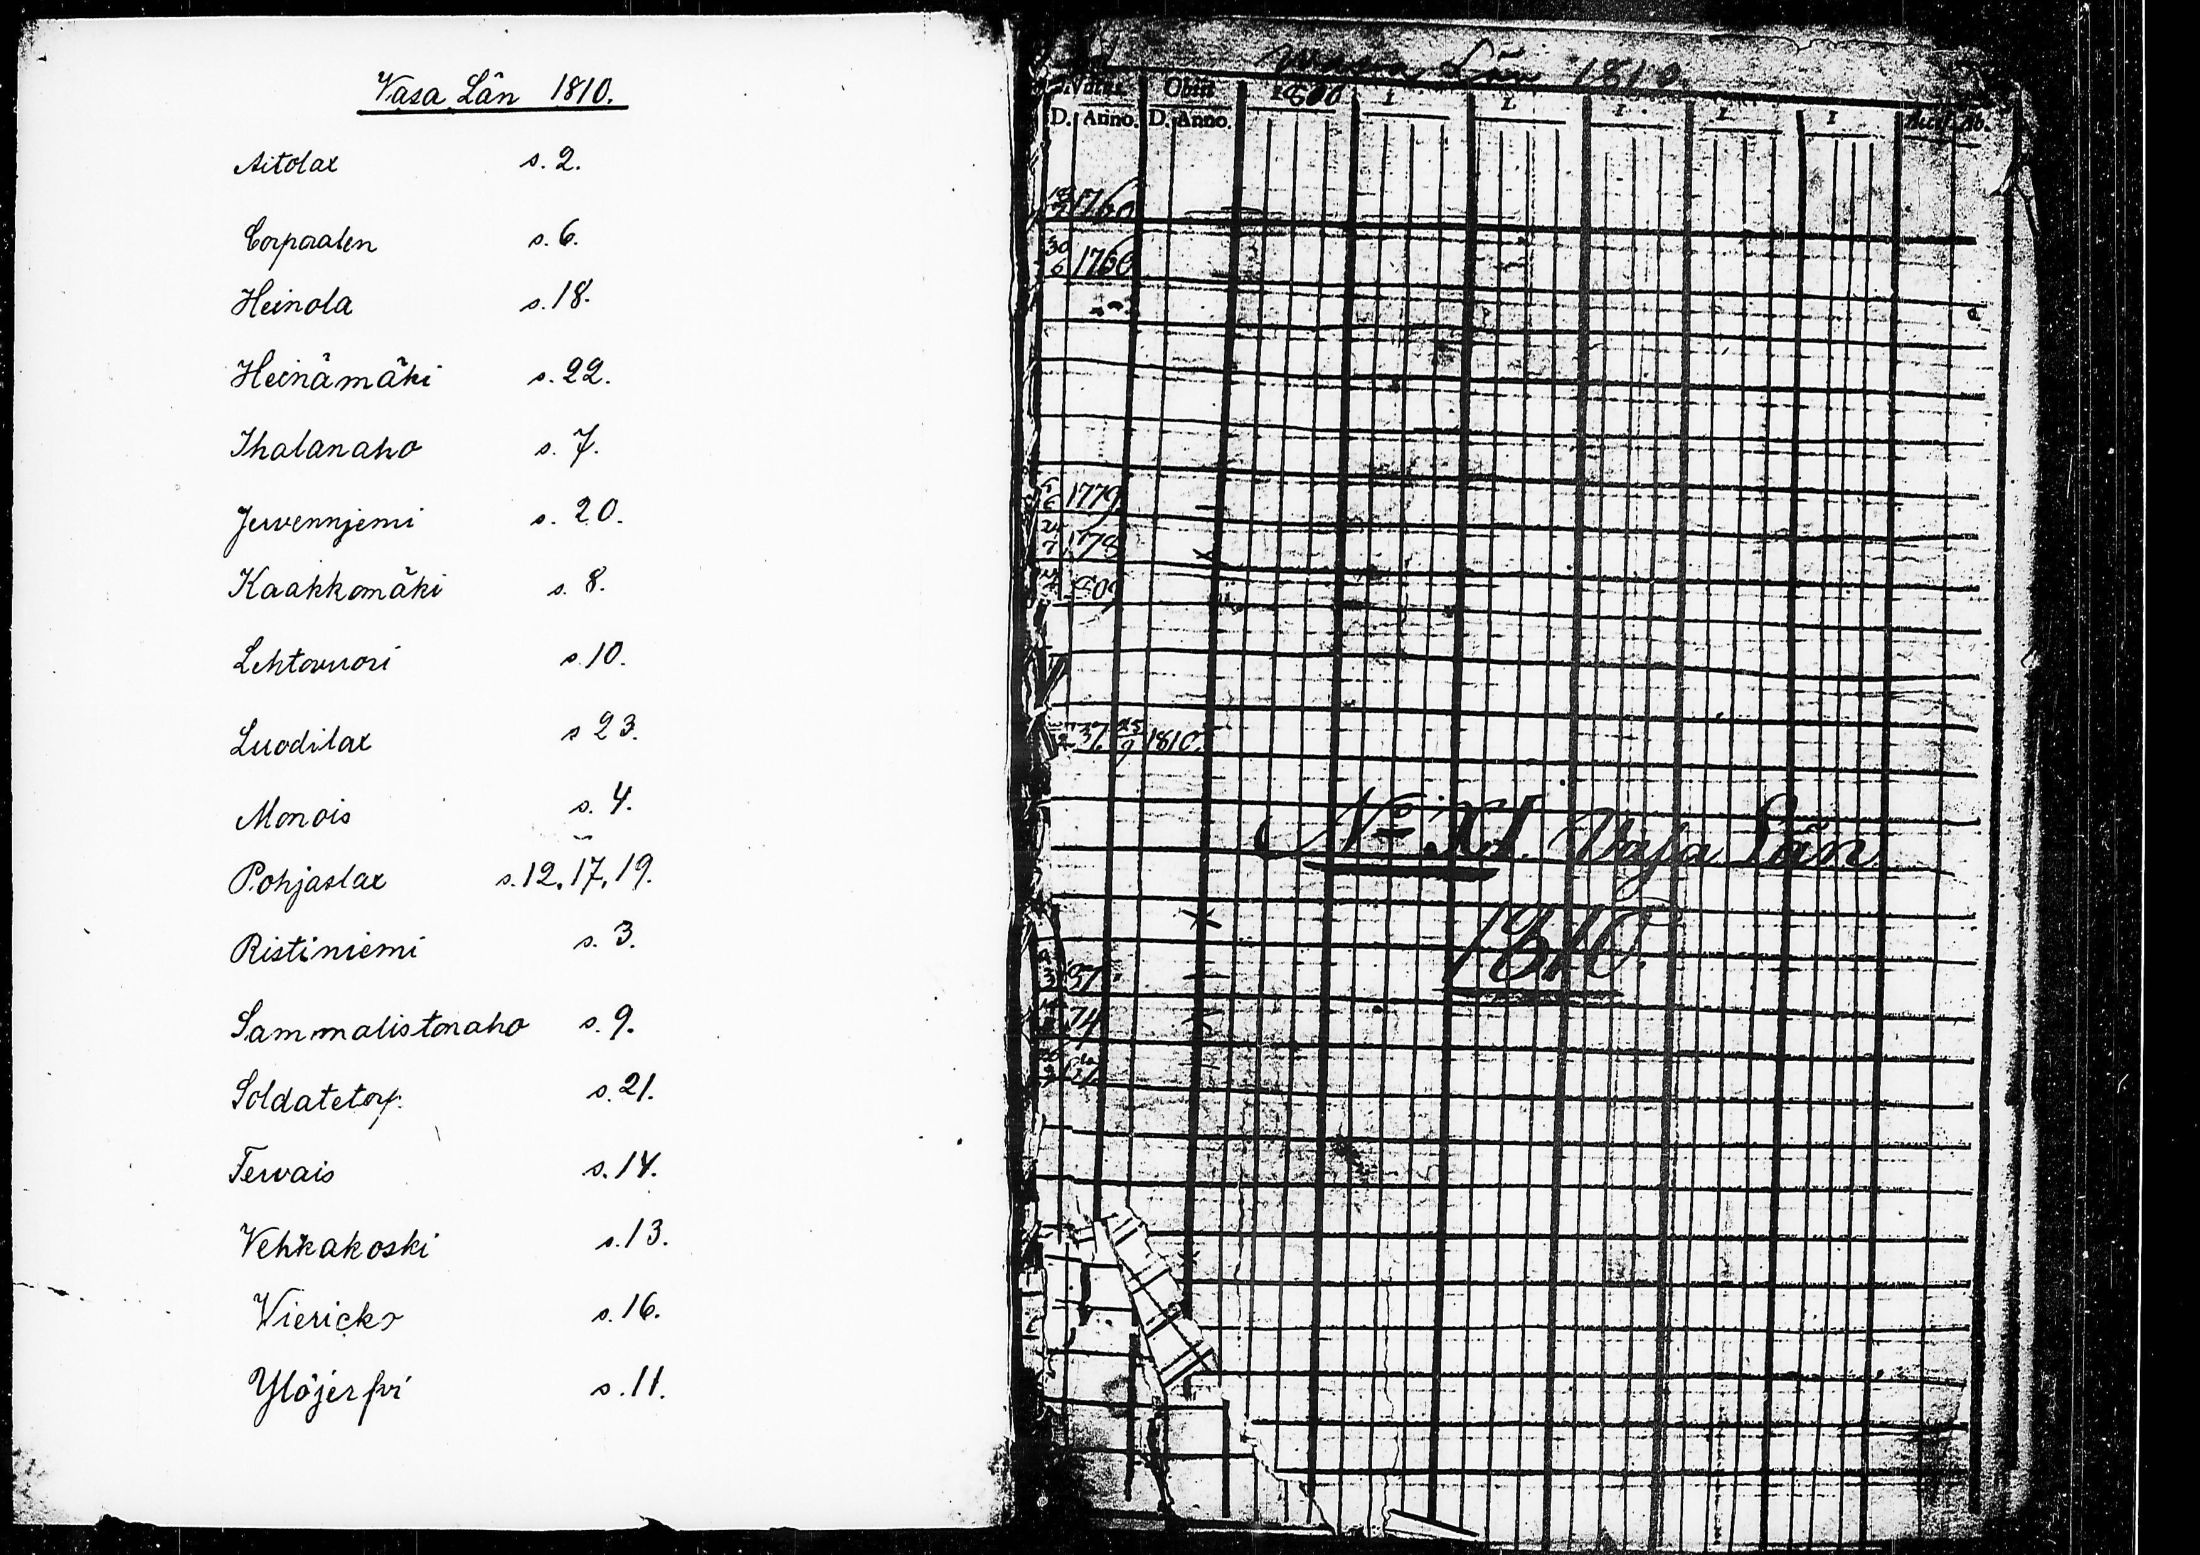 Vasa Län 1810.
Aitolax s. 2.
Corporalen s. 6.
Heinola s. 18.
Heinämäki s. 22.
Ihalanaho s. 7.
Jervennjemi s. 20.
Kaakkomäki s. 8.
Lehtovuori s. 10.
Luodilax s 23.
Monois s. 4.
Pohjaslax s. 12, 17, 19.
Ristiniemi s. 3.
Sammalistonaho s. 9.
Soldatetorp. s. 21.
Tervais s. 14.
Vehkakoski s. 13.
Viericks s. 16.
Ylöjerfvi s. 11.
Län 1810.
Obiit 1800 1 1 1 1 1
D. Anno. D. Anno.
1760
30/6 1760
1779
1778
1810.
No XI. Vasa Län
1810.